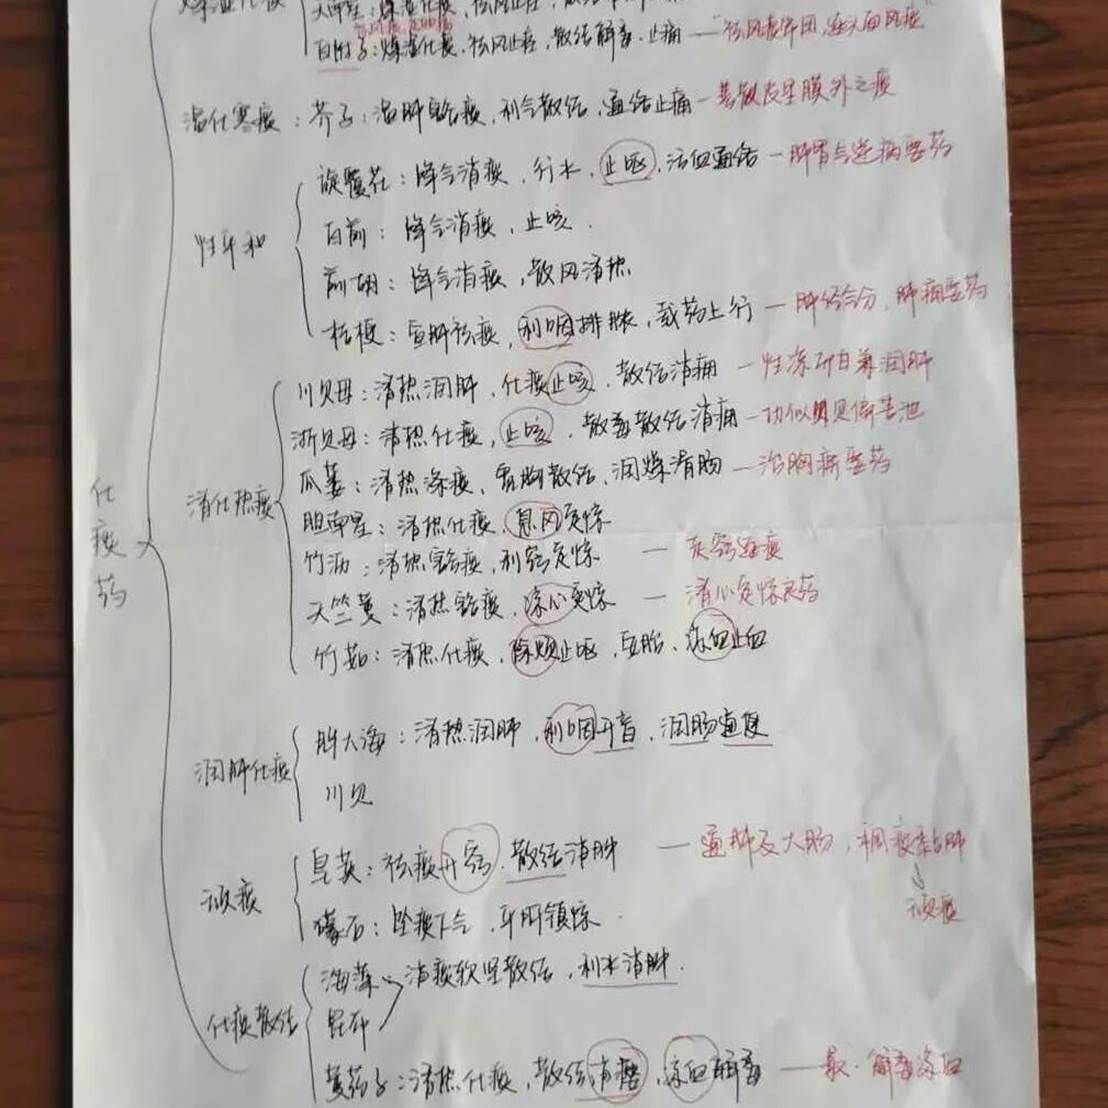 燥湿化痰
天南星：燥湿化痰，祛风止痉，散结
白附子：燥湿化痰，祛风止痉，散结解毒，止痛 — "祛风痰
温化寒痰：芥子：温肺豁痰，利气散结，通络止痛 — 善散皮里膜外之痰
性平和
旋覆花：降气消痰，行水，止呕，活血通络 — 肺胃气逆病要药
白前：降气消痰，止咳．
前胡：降气消痰，散风清热
桔梗：宣肺祛痰，利咽排脓，载药上行 — 肺经气分，肺病要药
化痰药
清化热痰
川贝母：清热润肺，化痰止咳，散结消痈 — 性凉而甘兼润肺
浙贝母：清热化痰，止咳，散毒散结消痈 — 功似川贝偏苦泄
瓜蒌：清热涤痰，宽胸散结，润燥滑肠 — 治胸痹要药
胆南星：清热化痰，息风定惊
竹沥：清热豁痰，利窍定惊
天竺黄：清热豁痰，凉心定惊 — 清心定惊良药
竹茹：清热化痰，除烦止呕，安胎，凉血止血
润肺化痰
胖大海：清热润肺，利咽开音，润肠通便
川贝
顽痰
皂荚：祛痰开窍，散结消肿 — 通肺及大肠，稠痰粘肺
↓
顽痰
礞石：坠痰下气，平肝镇惊．
化痰散结
海藻
昆布
消痰软坚散结，利水消肿．
黄药子：清热化痰，散结消瘿，凉血解毒 — 解毒凉血